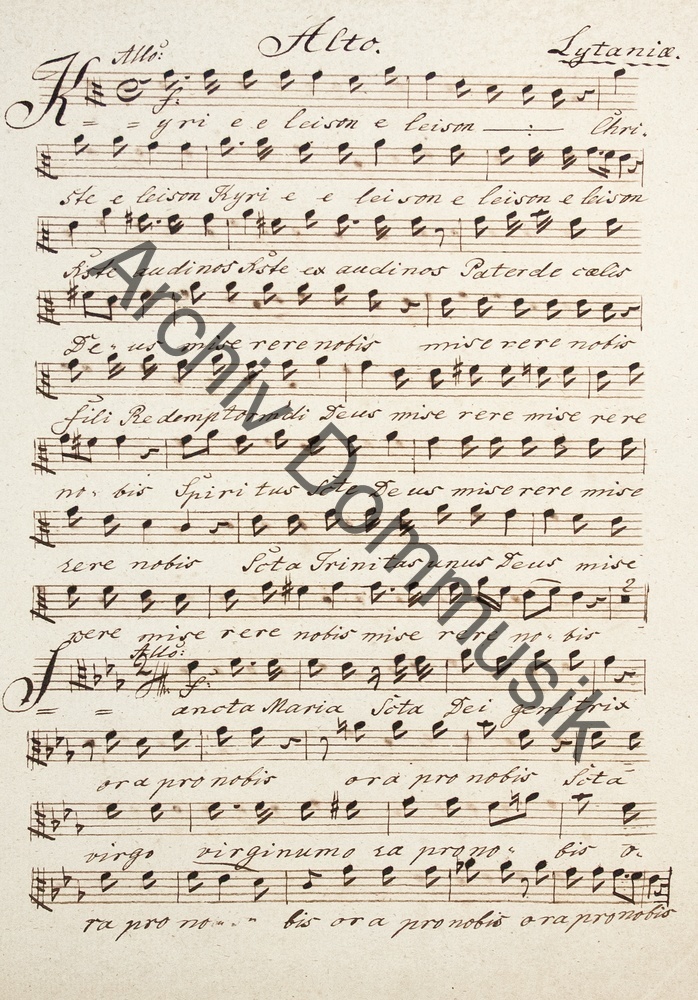 Alto.
Lytaniæ.
Allo:
f:
Kyri e e leison e leison Chri-
ste e leison Kyri e e leison e leison e leison
Xste audinos Xste ex audinos Paterde cælis
De-us mise rere nobis mise rere nobis
fili Redemptormdi Deus mise rere mise rere
no-bis Spiri tus Scte Deus mise rere mise
rere nobis Scta Trinitas unus Deus mise
rere mise rere nobis mise rere no-bis
2
Allo:
f:
Sancta Maria Scta Dei genitrix
ora pro nobis ora pro nobis Scta
virgo virginumo ra pro no- bis o-
ra pro no- bis ora pro nobis ora pro nobis
Archiv Dommusik